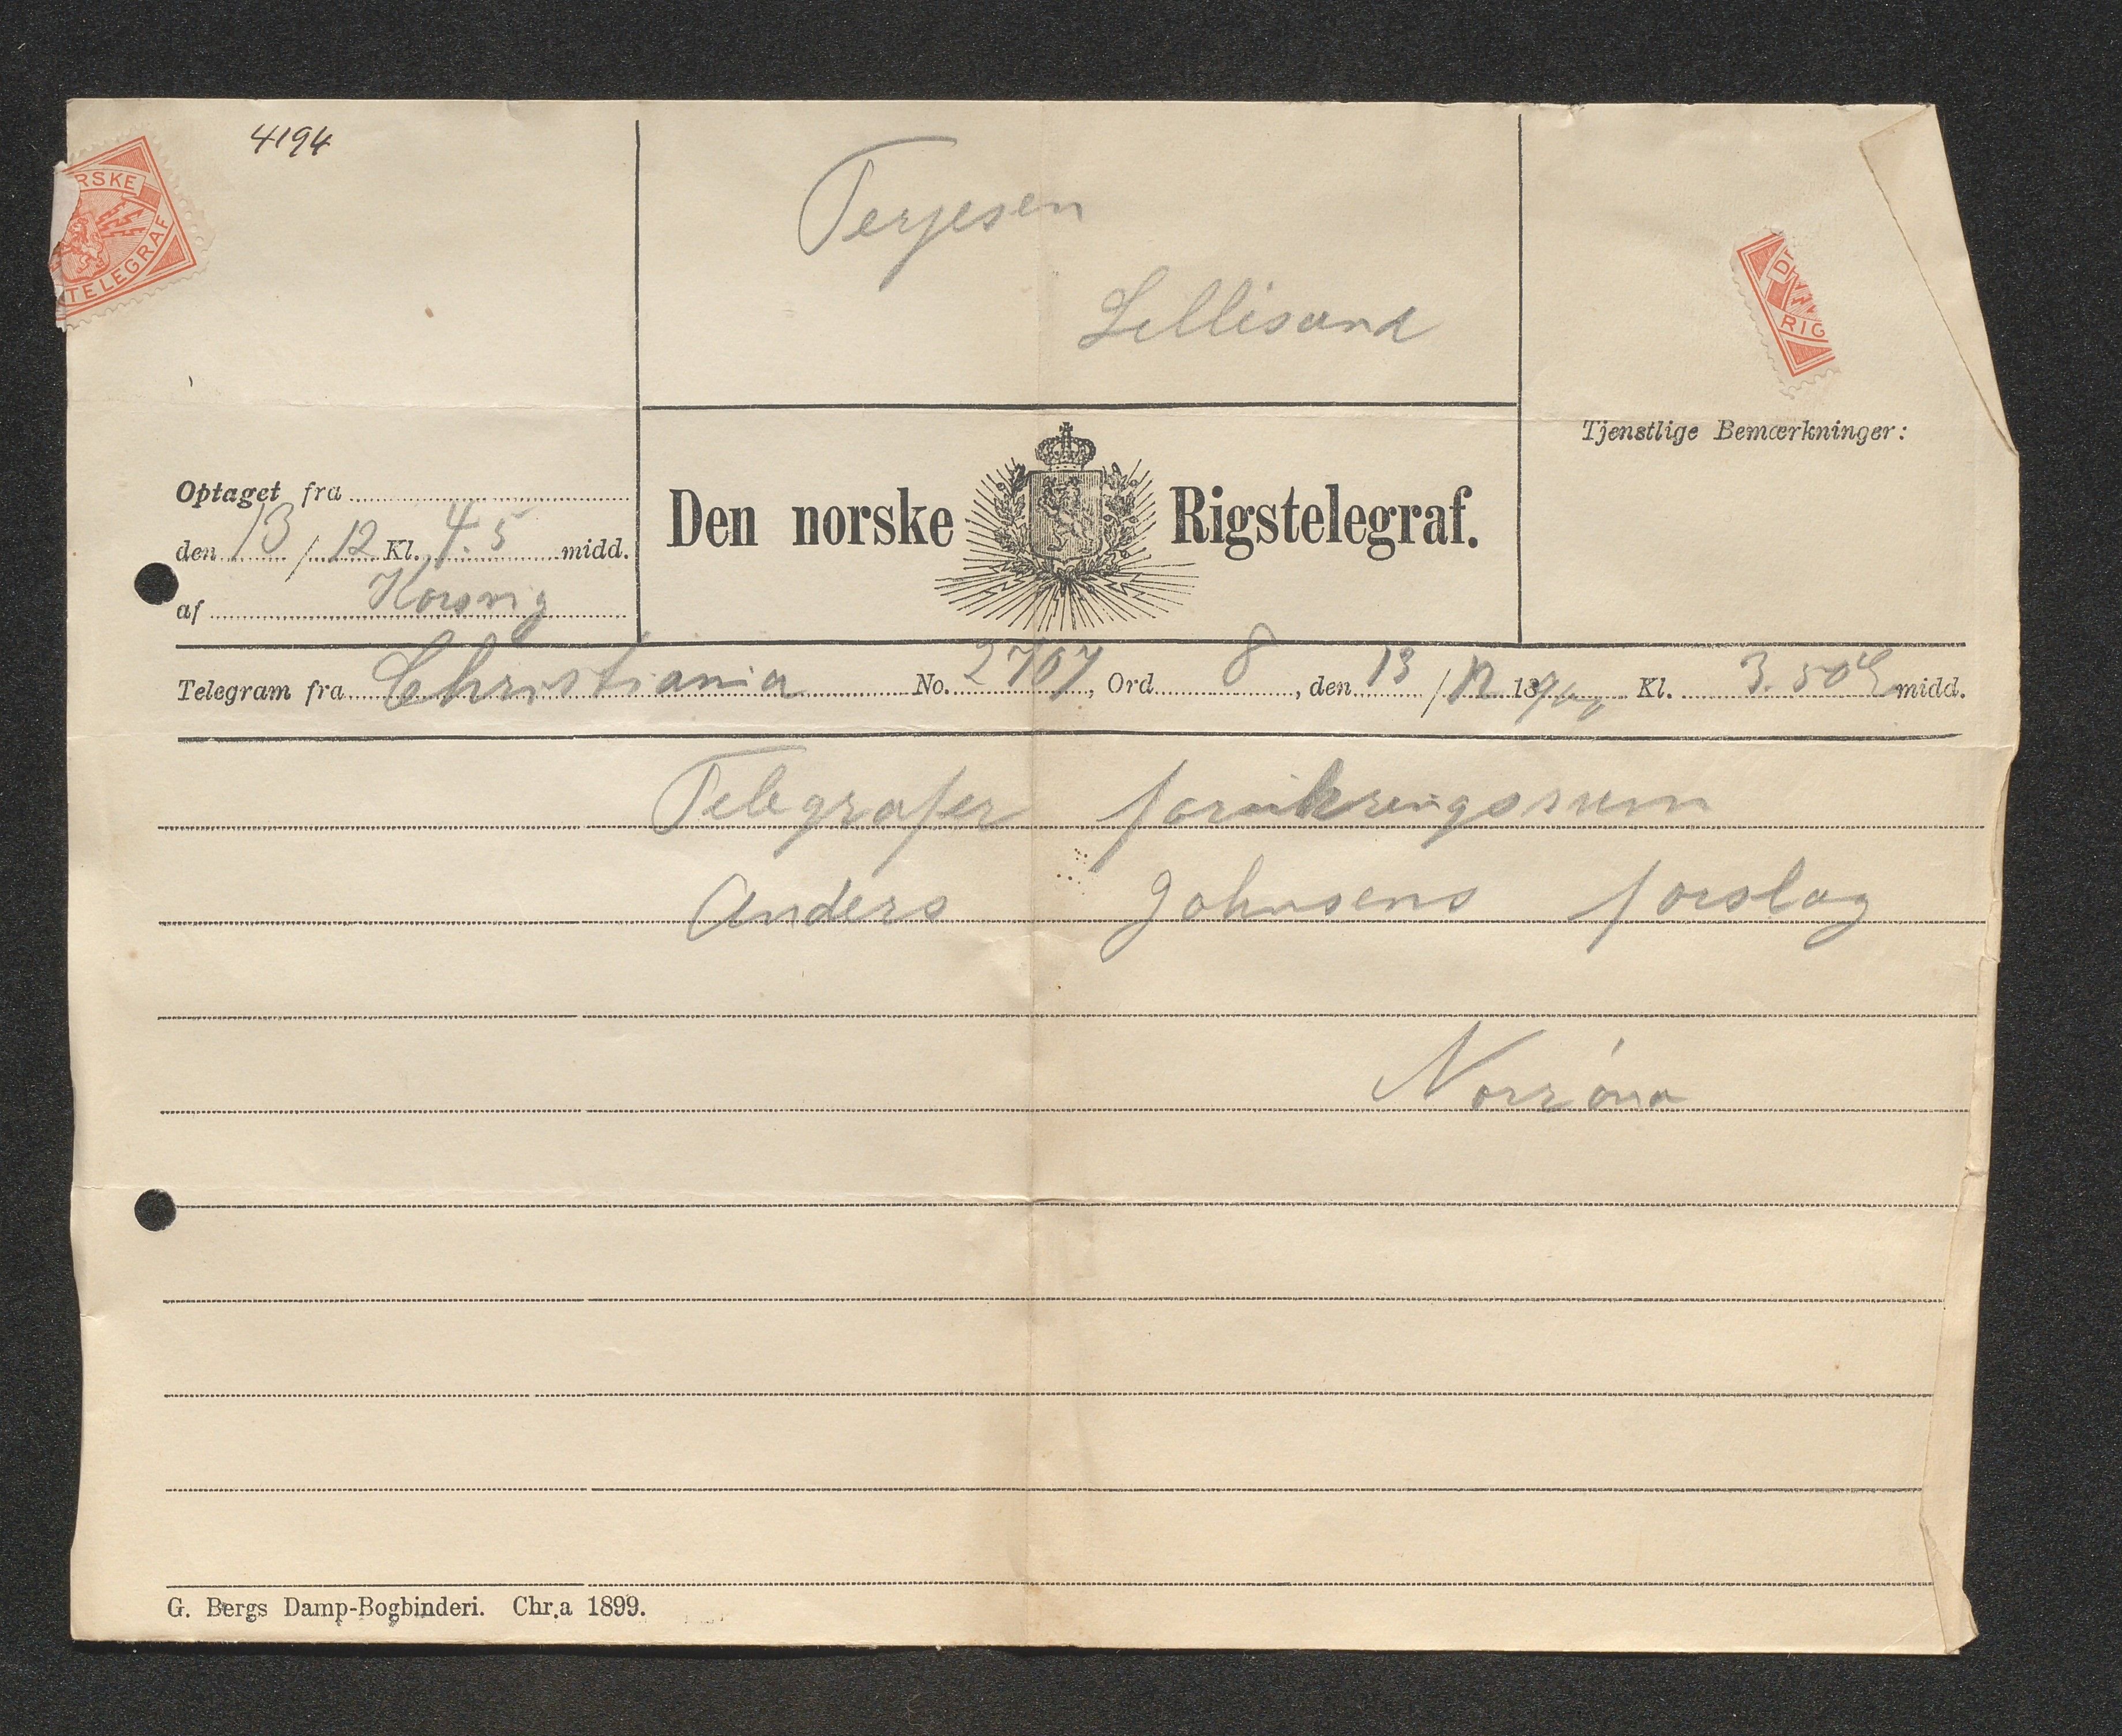 4194
RSKE
TELEGRAF
Terjesen
Lillisand
DE
RIG
Tjenstlige Bemærkninger:
Optaget fra
den 13 / 12 Kl. 4.5 midd.
af Korsvig
Den norske Rigstelegraf.
Telegram fra Christiania No. 2707, Ord 8, den 13 / 12 18 Kl. 3.50 E midd.
Telegrafer forsikringssum
Anders Johnsens forslag
Norröna
G. Bergs Damp-Bogbinderi. Chr.a 1899.